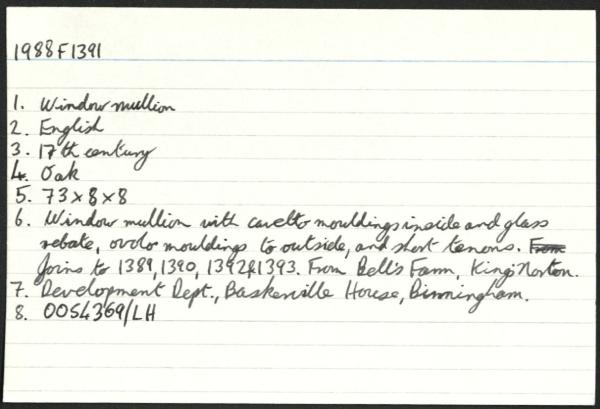 1988F1391
1. Window mullion
2. English
3. 17th century
4. Oak
5. 73 x 8 x 8
6. Window mullion with cavetto mouldings inside and glass
rebate, ovolo mouldings to outside, and short tenons. From
Joins to 1389, 1390, 1392 & 1393. From Bell's Farm, King's Norton.
7. Development Dept., Baskerville House, Birmingham.
8. 0054369/LH